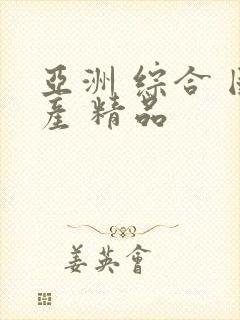 亞洲 綜合
產 精品
姜英會